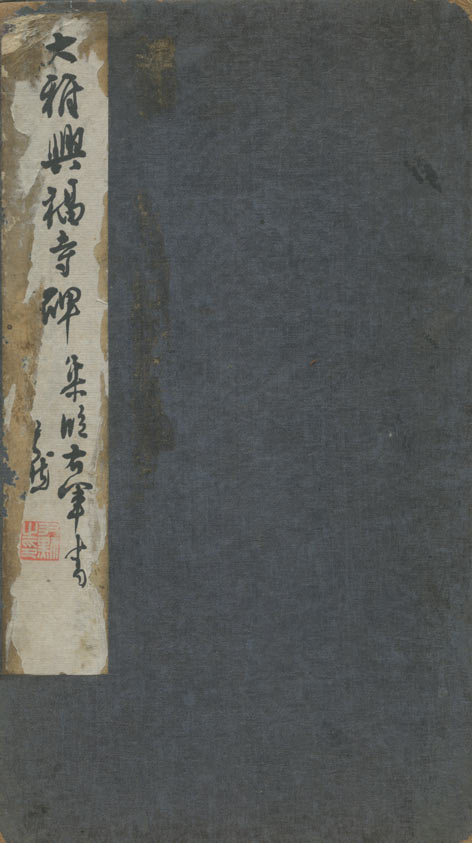 大雅興福寺碑
集晉右軍書